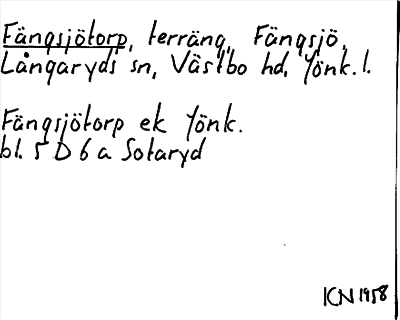 Fängsjötorp, terräng, Fängsjö,
Långaryds sn, Västbo hd, Jönk. l.
Fängsjötorp ek Jönk.
bl. 5 D 6 a Sotaryd
KN 1958